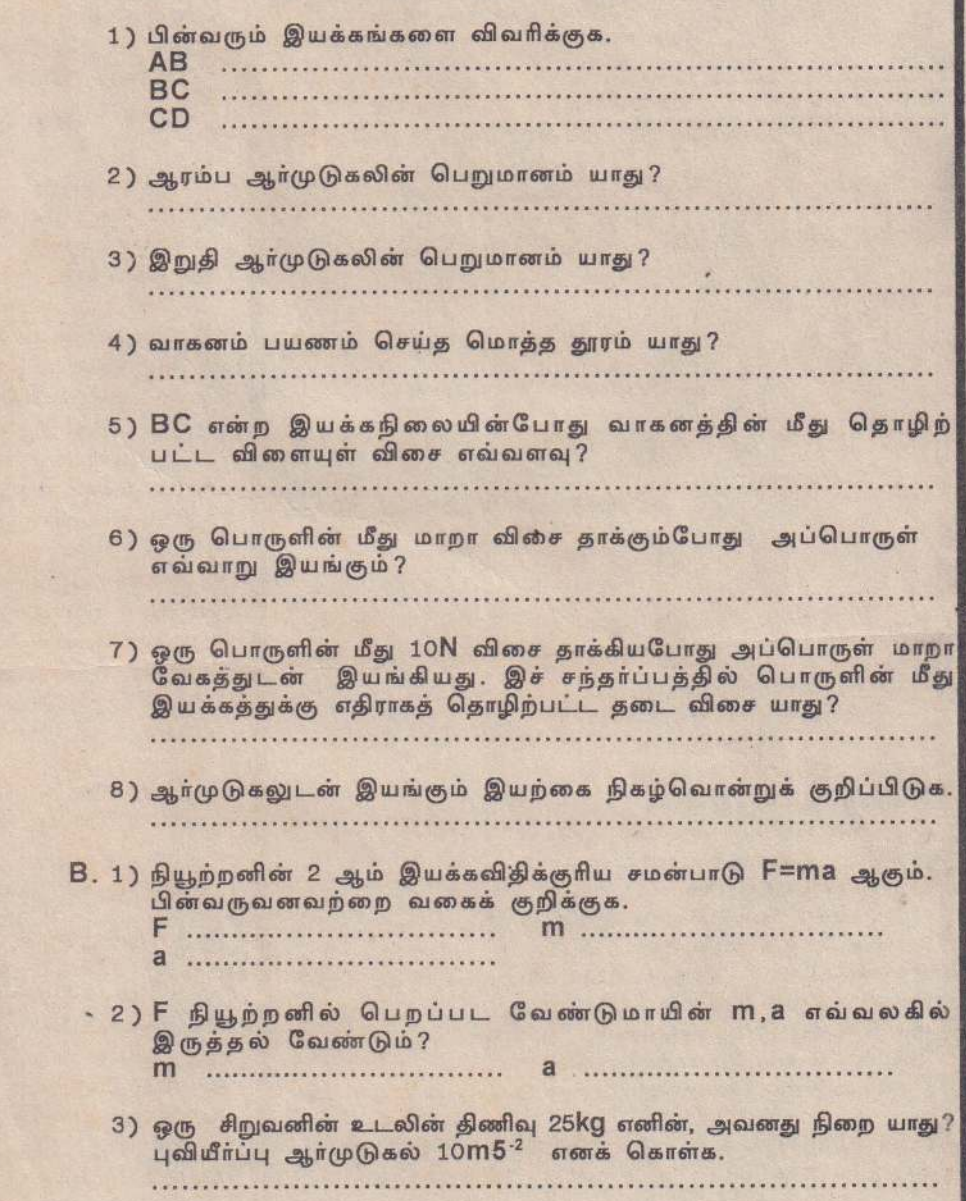 1) பின்வரும் இயக்கங்களை விவரிக்குக.
AB ........................................................................
BC ........................................................................
CD ........................................................................
2) ஆரம்ப ஆர்முடுகலின் பெறுமானம் யாது?
........................................................................
3) இறுதி ஆர்முடுகலின் பெறுமானம் யாது?
........................................................................
4) வாகனம் பயணம் செய்த மொத்த தூரம் யாது?
........................................................................
5) BC என்ற இயக்கநிலையின்போது வாகனத்தின் மீது தொழிற்
பட்ட விளையுள் விசை எவ்வளவு?
........................................................................
6) ஒரு பொருளின் மீது மாறா விசை தாக்கும்போது அப்பொருள்
எவ்வாறு இயங்கும்?
........................................................................
7) ஒரு பொருளின் மீது 10N விசை தாக்கியபோது அப்பொருள் மாறா
வேகத்துடன் இயங்கியது. இச் சந்தர்ப்பத்தில் பொருளின் மீது
இயக்கத்துக்கு எதிராகத் தொழிற்பட்ட தடை விசை யாது?
........................................................................
8) ஆர்முடுகலுடன் இயங்கும் இயற்கை நிகழ்வொன்றுக் குறிப்பிடுக.
........................................................................
B. 1) நியூற்றனின் 2 ஆம் இயக்கவிதிக்குரிய சமன்பாடு F=ma ஆகும்.
பின்வருவனவற்றை வகைக் குறிக்குக.
F ................................. m .................................
a .................................
2) F நியூற்றனில் பெறப்பட வேண்டுமாயின் m,a எவ்வலகில்
இருத்தல் வேண்டும்?
m ................................. a .................................
3) ஒரு சிறுவனின் உடலின் திணிவு 25kg எனின், அவனது நிறை யாது?
புவியீர்ப்பு ஆர்முடுகல் 10m5⁻² எனக் கொள்க.
........................................................................